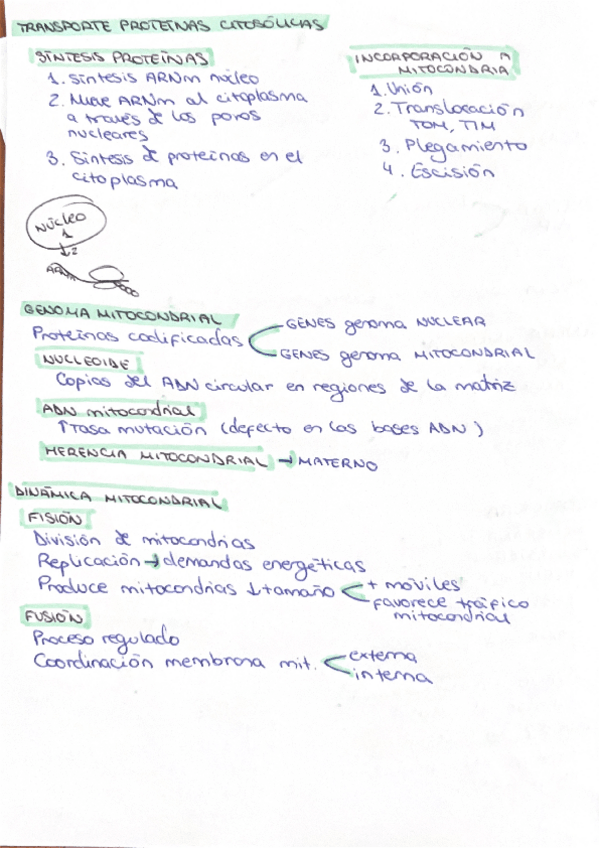 TRANSPORTE PROTEÍNAS CITOSÓLICAS
SÍNTESIS PROTEÍNAS
1. Síntesis ARNm núcleo
2. Mueve ARNm al citoplasma
a través de los poros
nucleares
3. Síntesis de proteínas en el
citoplasma
INCORPORACIÓN A
MITOCONDRIA
1. Unión
2. Translocación
TOM, TIM
3. Plegamiento
4. Escisión
NÚCLEO
1
↓2
ARNm
GENOMA MITOCONDRIAL
Proteínas codificadas
GENES genoma NUCLEAR
GENES genoma MITOCONDRIAL
NUCLEOIDE
Copias del ADN circular en regiones de la matriz
ADN mitocondrial
↑Tasa mutación (defecto en las bases ADN)
HERENCIA MITOCONDRIAL → MATERNO
DINÁMICA MITOCONDRIAL
FISIÓN
División de mitocondrias
Replicación → demandas energéticas
Produce mitocondrias ↓tamaño
+ móviles
favorece tráfico
mitocondrial
FUSIÓN
Proceso regulado
Coordinación membrana mit.
externa
interna